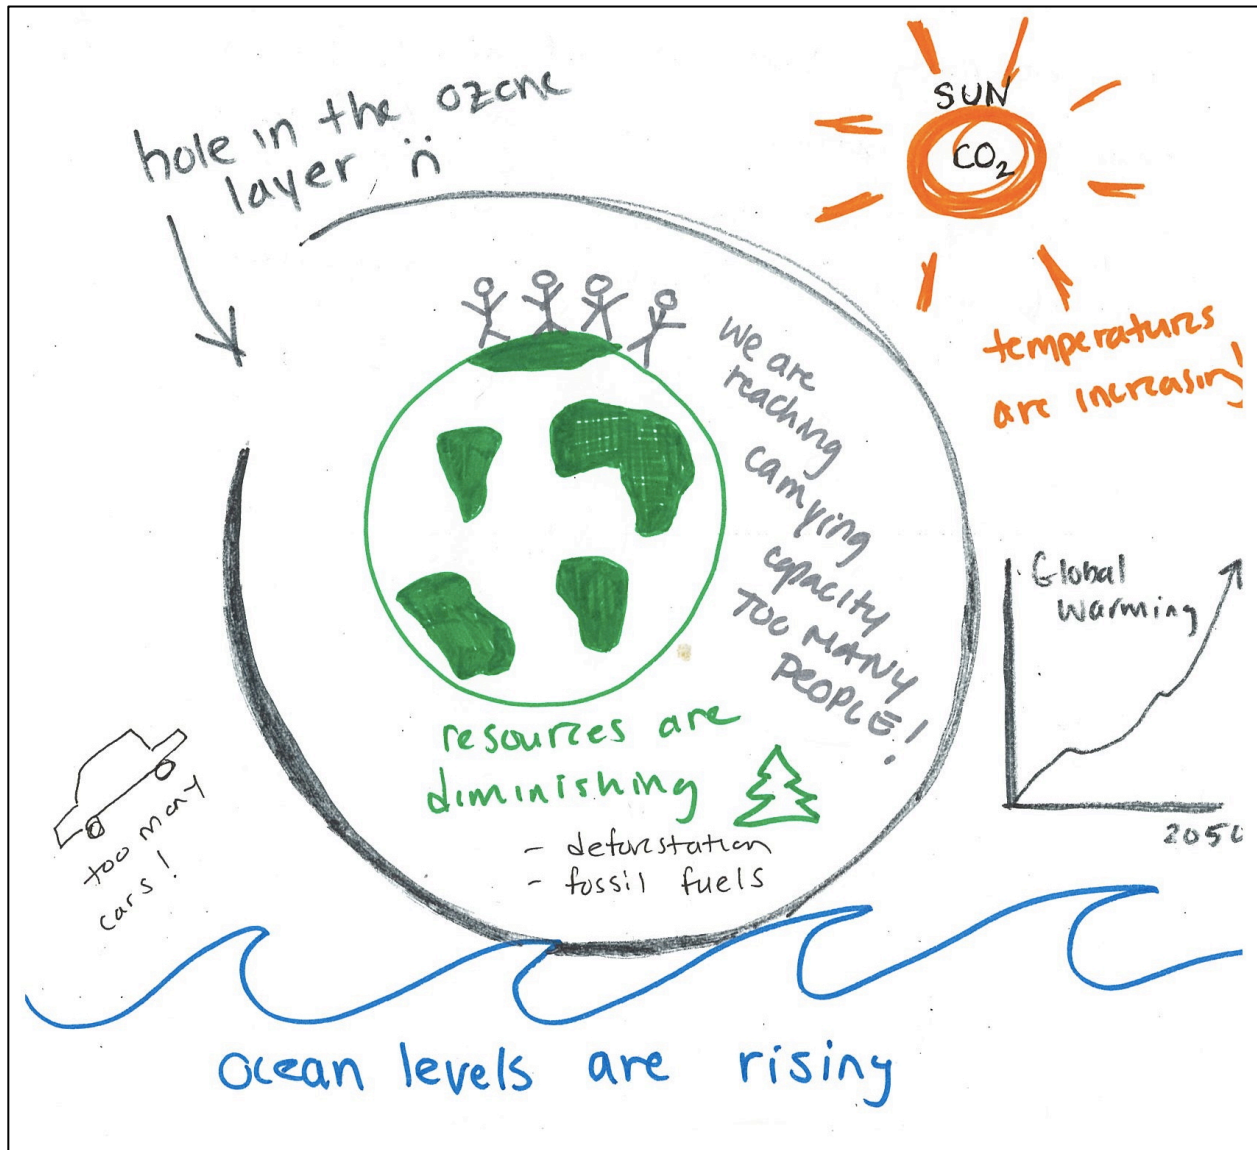 hole in the ozone
layer
SUN
CO₂
temperatures
are increasing!
we are
reaching
carrying
capacity
TOO MANY
PEOPLE!
Global
Warming
2050
resources are
diminishing
- deforestation
- fossil fuels
too many
cars!
ocean levels are rising